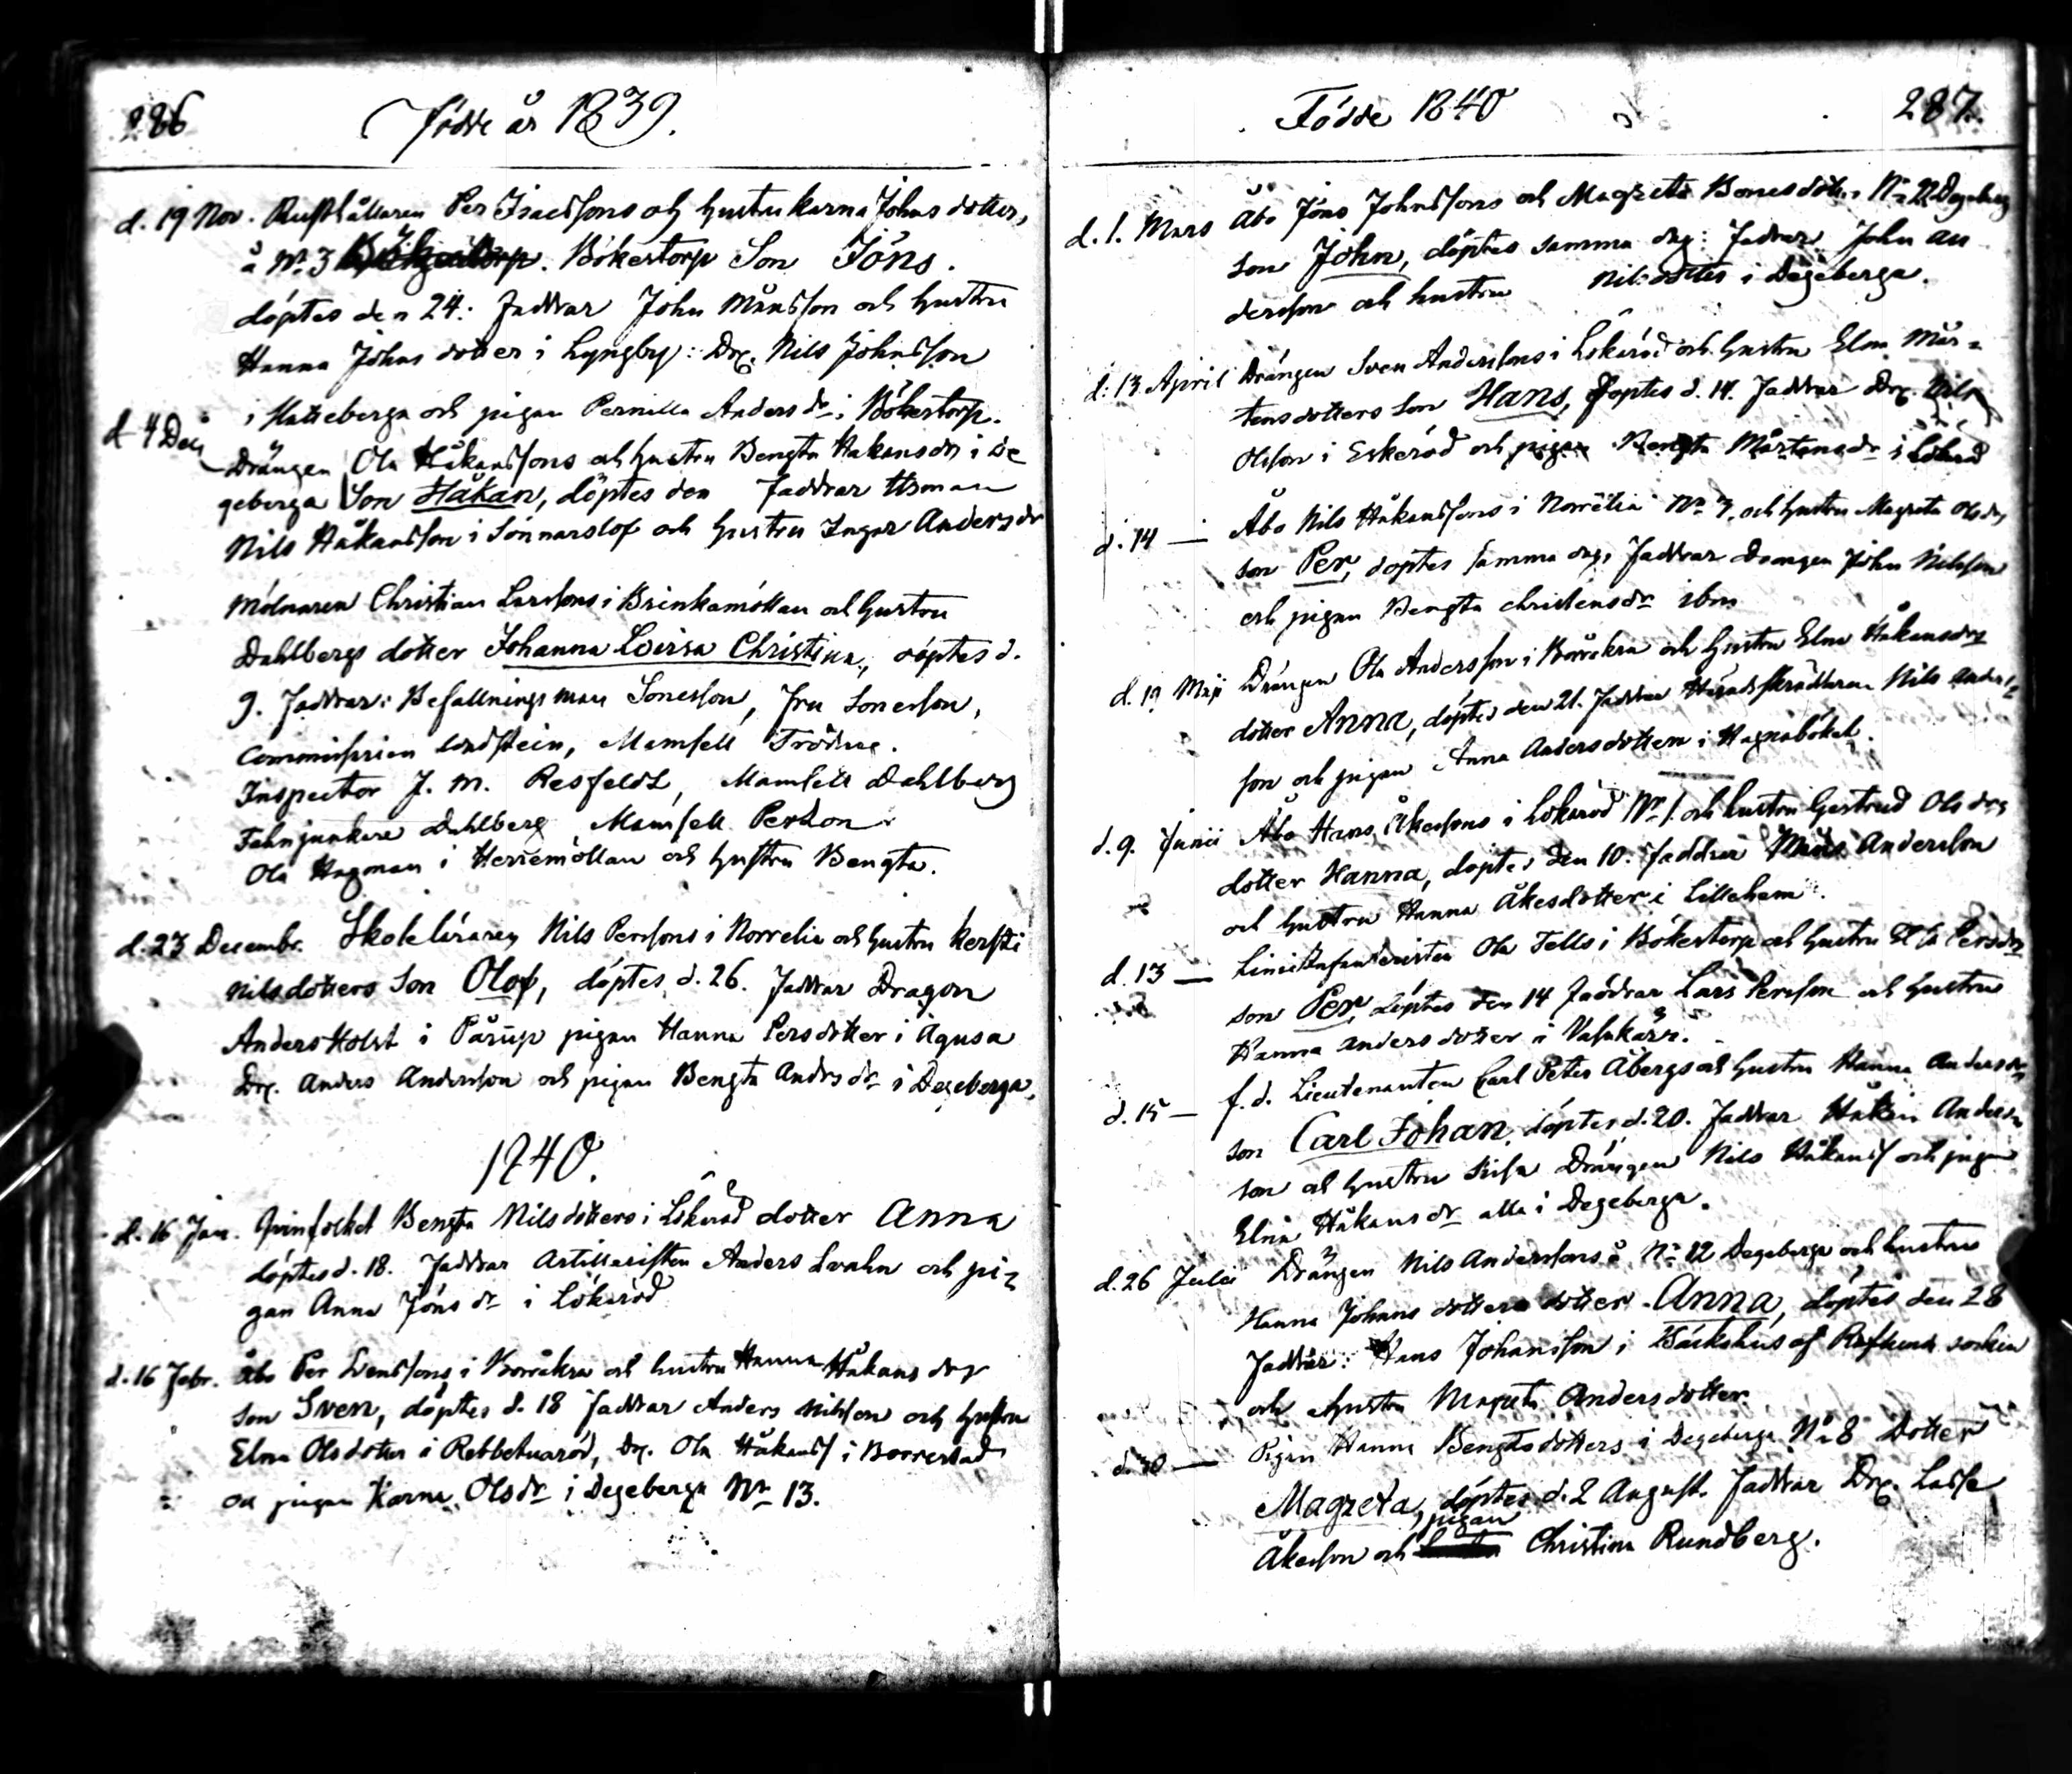 286
Födde år 1839.
d. 19 Nov. Rusthållaren Per Isacssons och hustru Karna Johns dotter,
å No 3 Bökestorp Son Jöns.
döptes den 24: Faddrar John Månsson och hustru
Hanna Johns dotter i Lyngby: Drg. Nils Johnsson
i Hatteberga och pigan Pernilla Anders dr i Bökestorp.
d. 4 Dec Drängen Ola Håkanssons och hustru Bengta Hakansdr i De
geberga Son Håkan, döptes den Faddrar
Nils Håkansson i Sönnarslöf och hustru Ingar Anders dr
Mölnaren Christian Larssons i Brinkamöllan och hustru
Dahlbergs dotter Johanna Lovisa Christina, döptes d.
9. Faddrar: Befallningsman Sonesson, fru Sonesson,
Mamsell
Inspector J. M. Resfeldt, Mamsell Dahlberg
Fahnjunkare Dahlberg, Mamsell
Ola Hagman i Herremöllan och hustru Bengta.
d. 23 Decembr. Skoleläraren Nils Perssons i Norrelia och hustru Kersti
Nilsdotters Son Olof, döptes d. 26. Faddrar Dragon
Anders Holst i Pärup pigan Hanna Persdotter i Agusa
Drg. Anders Andersson och pigan Bengta Andrs dr i Degeberga.
1840.
d. 16 Jan. Qvinfolket Bengta Nilsdotters i Lökaröd dotter Anna
döptes d. 18. Faddrar Artilleristen Anders Svahn och pi=
gan Anna Jöns dr i Lökaröd
d. 16 Febr. Åbo Per Svenssons i Borråkra och hustru Hanna Håkans drs
Son Sven, döptes d. 18 Faddrar Anders Nilsson och hustru
Elna Olsdotter i Rebbetuaröd, Drg. Ola Håkanss i Borrestad
och pigan Karna Olsdr i Degeberga No 13.
Födde 1840
287.
d. 1. Mars Åbo Jöns Johnssons och Magreta Bonesdotter No 22 Degeberg
son John, döptes samma dag: Faddrar John An
dersson och hustru Nilsdotter i Degeberga.
d. 13 April Drängen Sven Anderssons i Lökaröd och hustru Elna Mår=
tensdotters Son Hans, döptes d. 14. Faddrar Drg. Nils
Olsson i Eskeröd och pigan Bengta Mårtensdr i Lökaröd
d. 14 — Åbo Nils Håkanssons i Norrelia No 3, och hustru Magreta Olsdrs
son Per, döptes samma dag, Faddrar Drängen John Nilsson
och pigan Bengta Christensdr ibm
d. 19 Maji Drängen Ola Andersson i Borråkra och hustru Elna Håkansdrs
dotter Anna, döptes den 21. Faddrar Häradsskräddaren Nils Anders=
son och pigan Anna Andersdotter i
d. 9. Junii Åbo Hans Åkessons i Lökaröd No 1. och hustru Gertrud Olsdrs
dotter Hanna, döptes den 10. Faddrar Måns Andersson
och hustru Hanna Åkesdotter i Lillehem.
d. 13 — Linie Infanteristen Ola Tells i Bökestorp och hustru Elsa Persdrs
son Per, döptes den 14 Faddrar Lars Persson och hustru
Hanna Anders dotter i
d. 15 — f. d. Lieutenanten Carl Peter Åbergs och hustru Hanna Andersdrs
son Carl Johan, döptes d. 20. Faddrar Håkan Anders=
son och hustru Kersa Drängen Nils Håkanss och pigan
Elna Håkans dr alla i Degeberga.
d. 26 Julii Drängen Nils Anderssons å No 12 Degeberga och hustru
Hanna Johans dotters dotter Anna, döptes den 28
Faddrar: Hans Johansson i Bäckshus af Raflunda socken
och hustru Magreta Anders dotter.
d. 30 — Pigan Hanna Bengtsdotters i Degeberga No 8 Dotter
Magreta, döptes d. 2 August. Faddrar Drg. Lasse
pigan
Åkesson och Christina Rundberg.